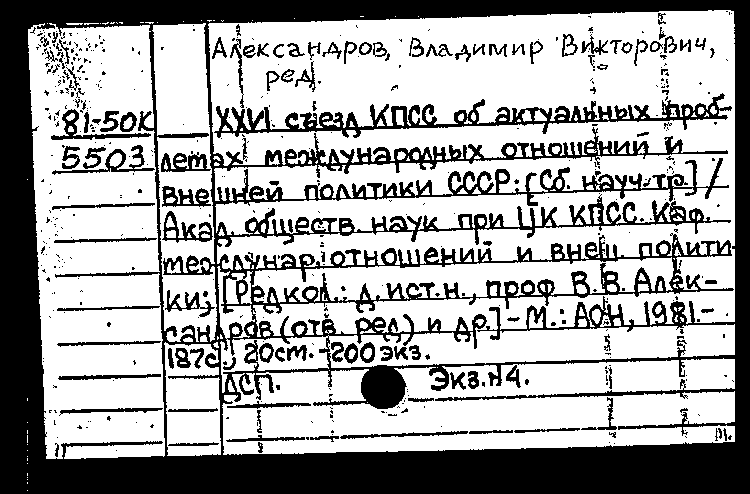 Александров, Владимир Викторович,
ред.
81-50К XXVI съезд КПСС об актуальных проб-
5503 лемах международных отношений и
внешней политики СССР: [Сб. науч. тр.] /
Акад. обществ. наук при ЦК КПСС. Каф.
междунар. отношений и внеш. полити-
ки; [Редкол.: д. ист. н., проф В. В. Алек-
сандров (отв. ред.) и др.] - М.: АОН, 1981.-
187с.; 20см. - 200 экз.
ДСП. Экз.№4.